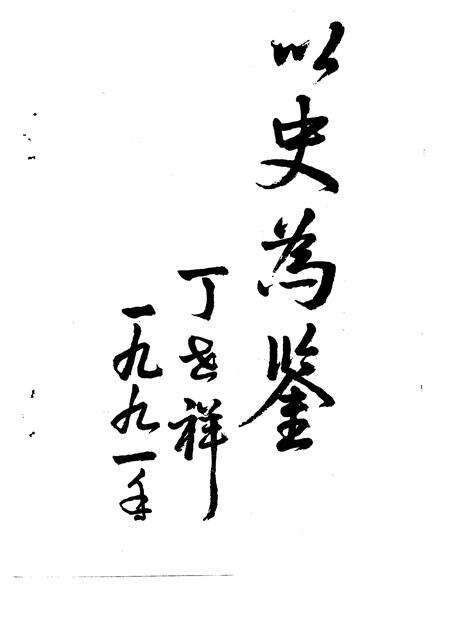 以史為鉴
丁世祥
一九九一年